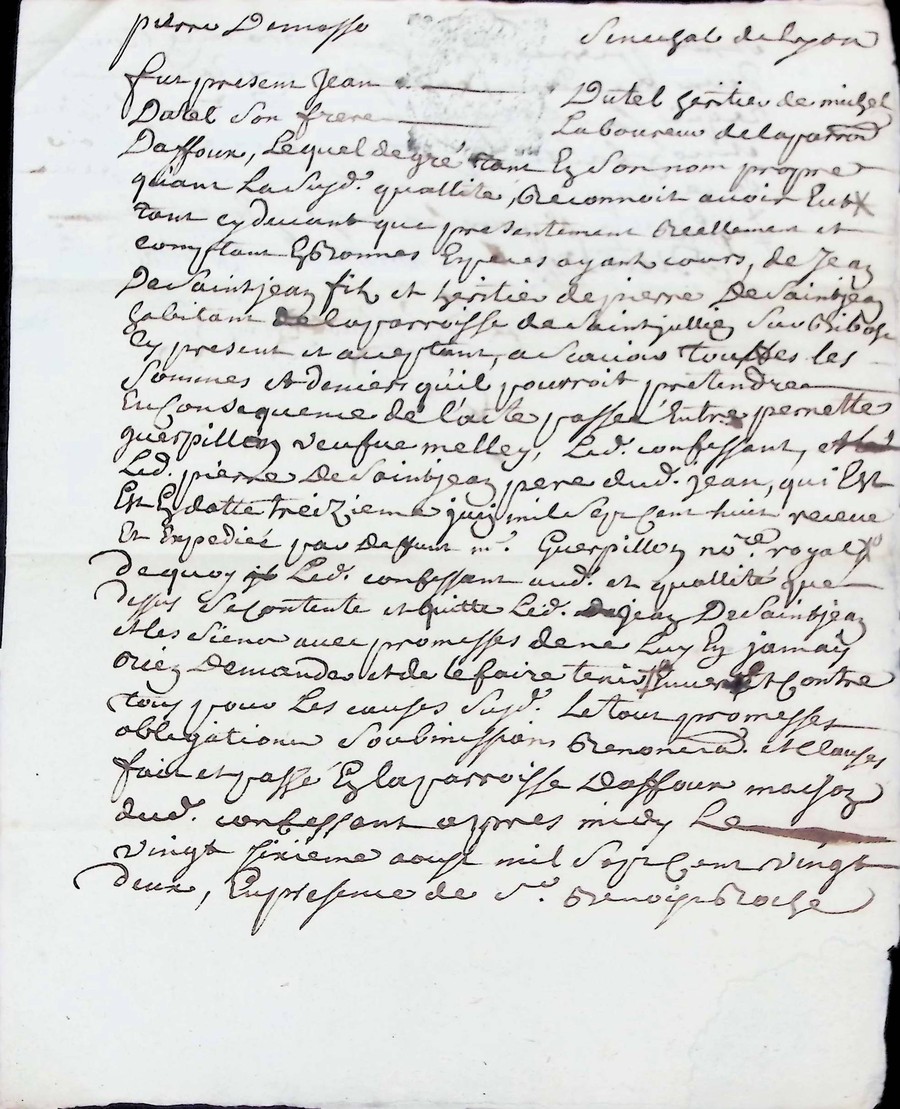 pierre Demosse senechal de lyon
fut present Jean Dutel heritier de michel
Dutel son frere Laboureur de la parroisse
Daffoux, Lequel de gré tant En son nom propre
quant La susd. quallité, Reconnoit avoir Eut
tant cy devant que presentement Reellement et
comptant En bonnes Especes ayant cours, de Jean
De Saintjean fils et heritier de pierre De Saintjean
habitant de la parroisse de Saint jullien sur bibost
Cy present et acceptant, a scavoir touttes les
sommes et deniers quil pourroit pretendre
En consequence de l'acte passé Entre pernette
guerpillon veufve melley, Led. confessant, et
Led. pierre De Saintjean pere dud. jean, qui Est
Est En datte treizieme juin mil sept cent huit receue
Et Expediée par deffunt me. Guerpillon nore. royal
de quoy Led. confessant aud. et quallité que
dessus se contente et quitte Led. jean De Saintjean
et les siens avec promesses de ne Luy En jamais
Rien demander et de le faire tenir Envers Et contre
tous pour Les causes susd. Le tout promesses
obligations soubmissions Renonciad. et clauses
fait et passé En la parroisse Daffoux maison
dud. confessant apres midy Le
vingt sixieme aoust mil sept cent vingt
deux, En presence de sr. Benoist Roche